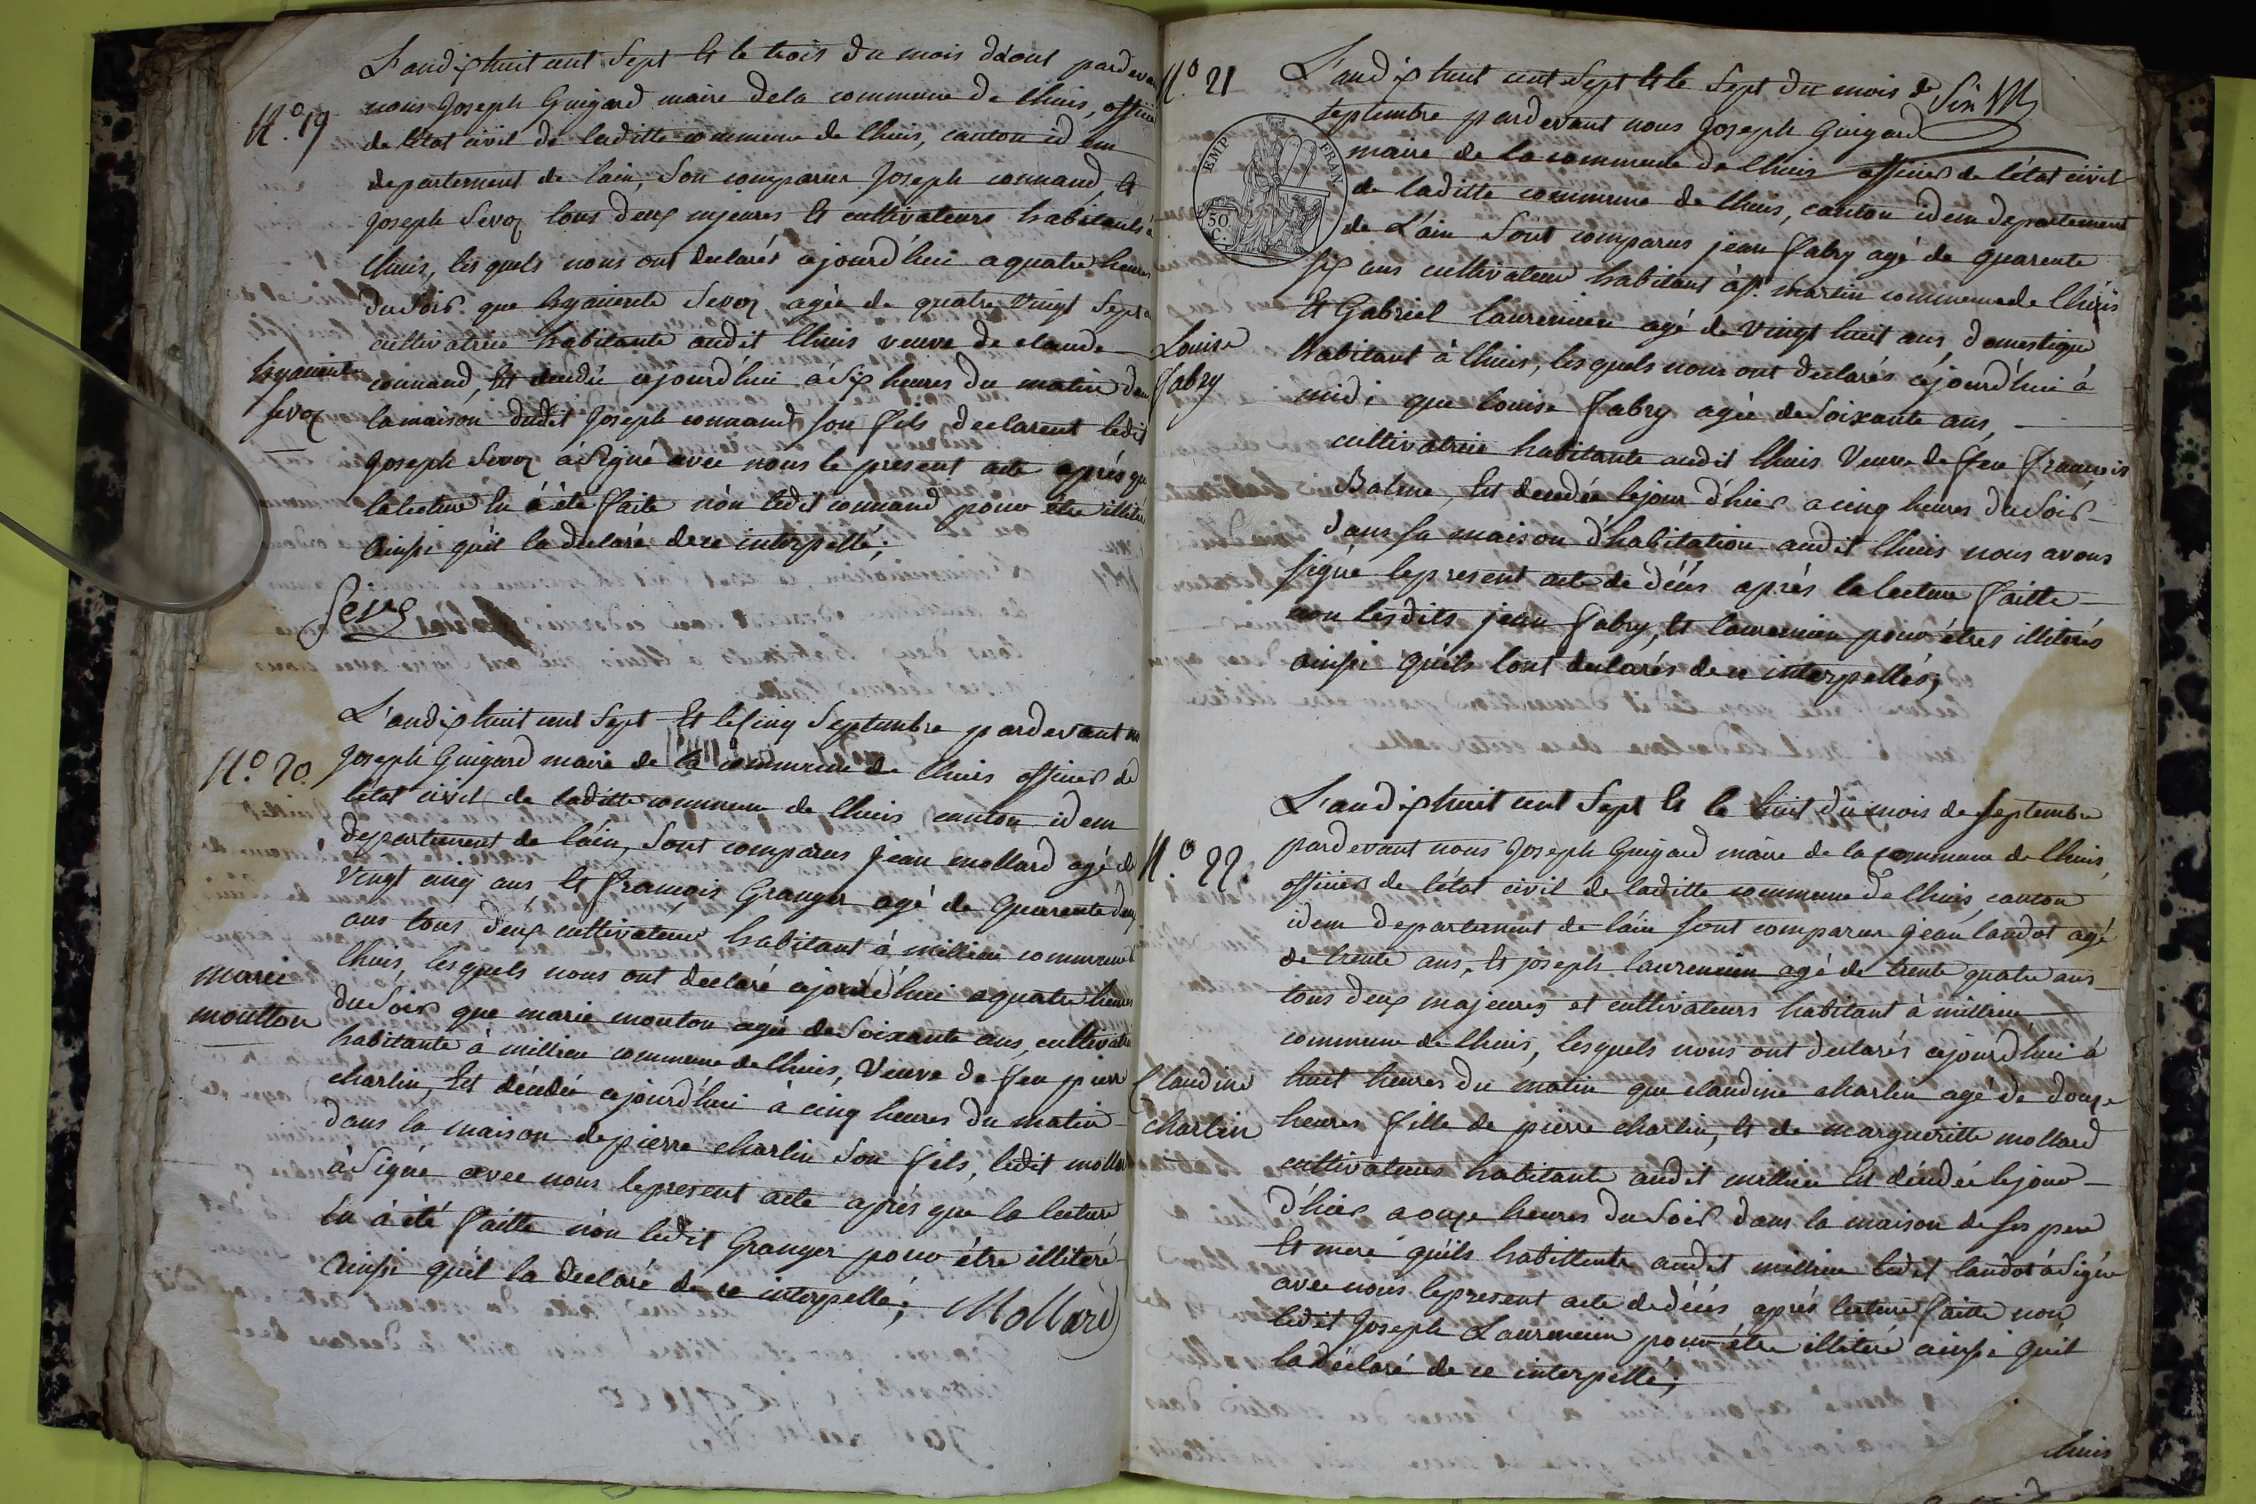 L'an dix huit cent Sept Et le trois du mois d'aout pardevant
N.º 19
nous Joseph Guigard maire dela commune de lhuis, officier
de létat civil de laditte commune de lhuis, canton idem
departement de lain, Son comparus Joseph connand, Et
Joseph Sevoz tous deux majeures Et cultivateurs habitants à
lhuis, lesquels nous ont declarés cejourd'hui a quatre heures
du Soir que hyacinte Sevoz agée de quatre Vingt Sept
cultivatrice habitante audit lhuis veuve de claude
hyacinte
Sevoz
connand, Est decedée cejourd'hui à Six heures du matin dans
la maison dudit Joseph connand son fils declarent ledit
Joseph Sevoz à Signé avec nous le present acte aprés que
la lecture lu à été faite nón ledit connand pour être illitéré
ainsi quil la declaré de ce interpellé;
Sevoz
L'an dix huit cent Sept Et le Cinq Septembre pardevant nous
N.º 20.
Joseph Guigard maire de la commune de lhuis officier de
létat civil de laditte commune de lhuis canton idem
departement de láin, Sont comparus jean mollard agé de
Vingt cinq ans Et françois Granger agé de quarente deux
ans tous deux cultivateur habitant à millieu commune de
lhuis, lesquels nous ont declaré cejourd'hui a quatre heures
marie
moutton
du Soir que marie mouton agée de Soixante ans, cultivatrice
habitante à millieu commune de lhuis, Veuve de feu pierre
charlin, Est décédée cejourd'hui à cinq heures du matin
dans la maison de pierre charlin Son fils, ledit mollard
à Signé avec nous le present acte aprés que la lecture
lu à été faitte nón ledit Granger pour être illiteré
ainsi quil la declaré de ce interpellé;
Mollard
N.º 21
L'an dix huit cent Sept Et le Sept du mois de
Septembre pardevant nous Joseph Guigard
EMP FRAN
50
C.
maire de la commune de lhuis officier de létat civil
de laditte commune de lhuis, canton idem departement
de L'ain Sont comparus jean fabry agé de quarente
Six ans cultivateur habitant à St. martin commune de lhuis
Et Gabriel laurencien agé de Vingt huit ans, domestique
Louise
fabry
habitant à lhuis, lesquels nous ont declarés cejourd'hui à
midi que louise fabry agée de Soixante ans,
cultivatrice habitante audit lhuis Veuve de feu françois
Balme, Est decedée lejour d'hier a cinq heures du Soir
dans sa maison d'habitation audit lhuis nous avons
signé le present acte de décés aprés la lecture faitte
non lesdits jean fabry, Et laurencien pour étres illiterés
ainsi quils lont declarés de ce interpellés;
L'an dix huit cent Sept Et le huit du mois de septembre
N.º 22.
pardevant nous Joseph Guigard maire de la commune de lhuis,
officier de létat civil de laditte commune de lhuis, canton
idem departement de láin sont comparus jean landot agé
de trente ans, Et joseph laurencien agé de trente quatre ans
tous deux majeures et cultivateurs habitant à millieu
commune de lhuis, lesquels nous ont declarés cejourd'hui à
Claudine
charlin
huit heures du matin que claudine charlin agé de douze
heures fille de pierre charlin, Et de margueritte mollard
cultivateurs habitante audit millieu Est décédée lejour
d'hier a onze heures du Soir dans la maison de ses pere
Et mere quils habittente audit millieu ledit landot à Signé
avec nous le present acte de décés aprés lecture faitte non
ledit Joseph Laurencien pour étre illiteré ainsi quil
la declaré de ce interpellé;
lhuis